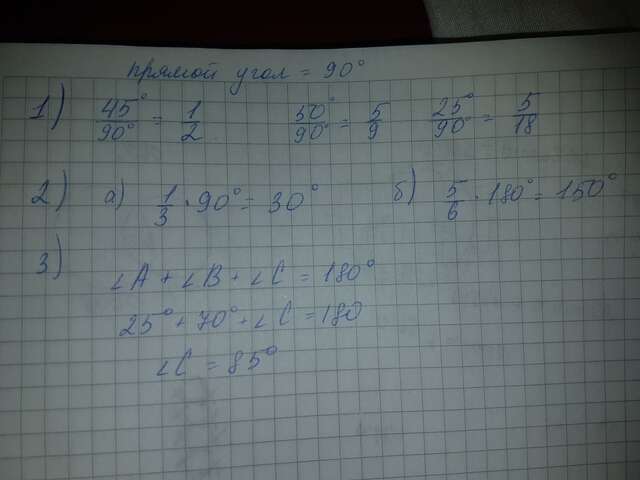 прямой угол = 90°
1) 45°/90° = 1/2 50°/90° = 5/9 25°/90° = 5/18
2) а) 1/3 · 90° = 30° б) 5/6 · 180° = 150°
3)
∠A + ∠B + ∠C = 180°
25° + 70° + ∠C = 180
∠C = 85°